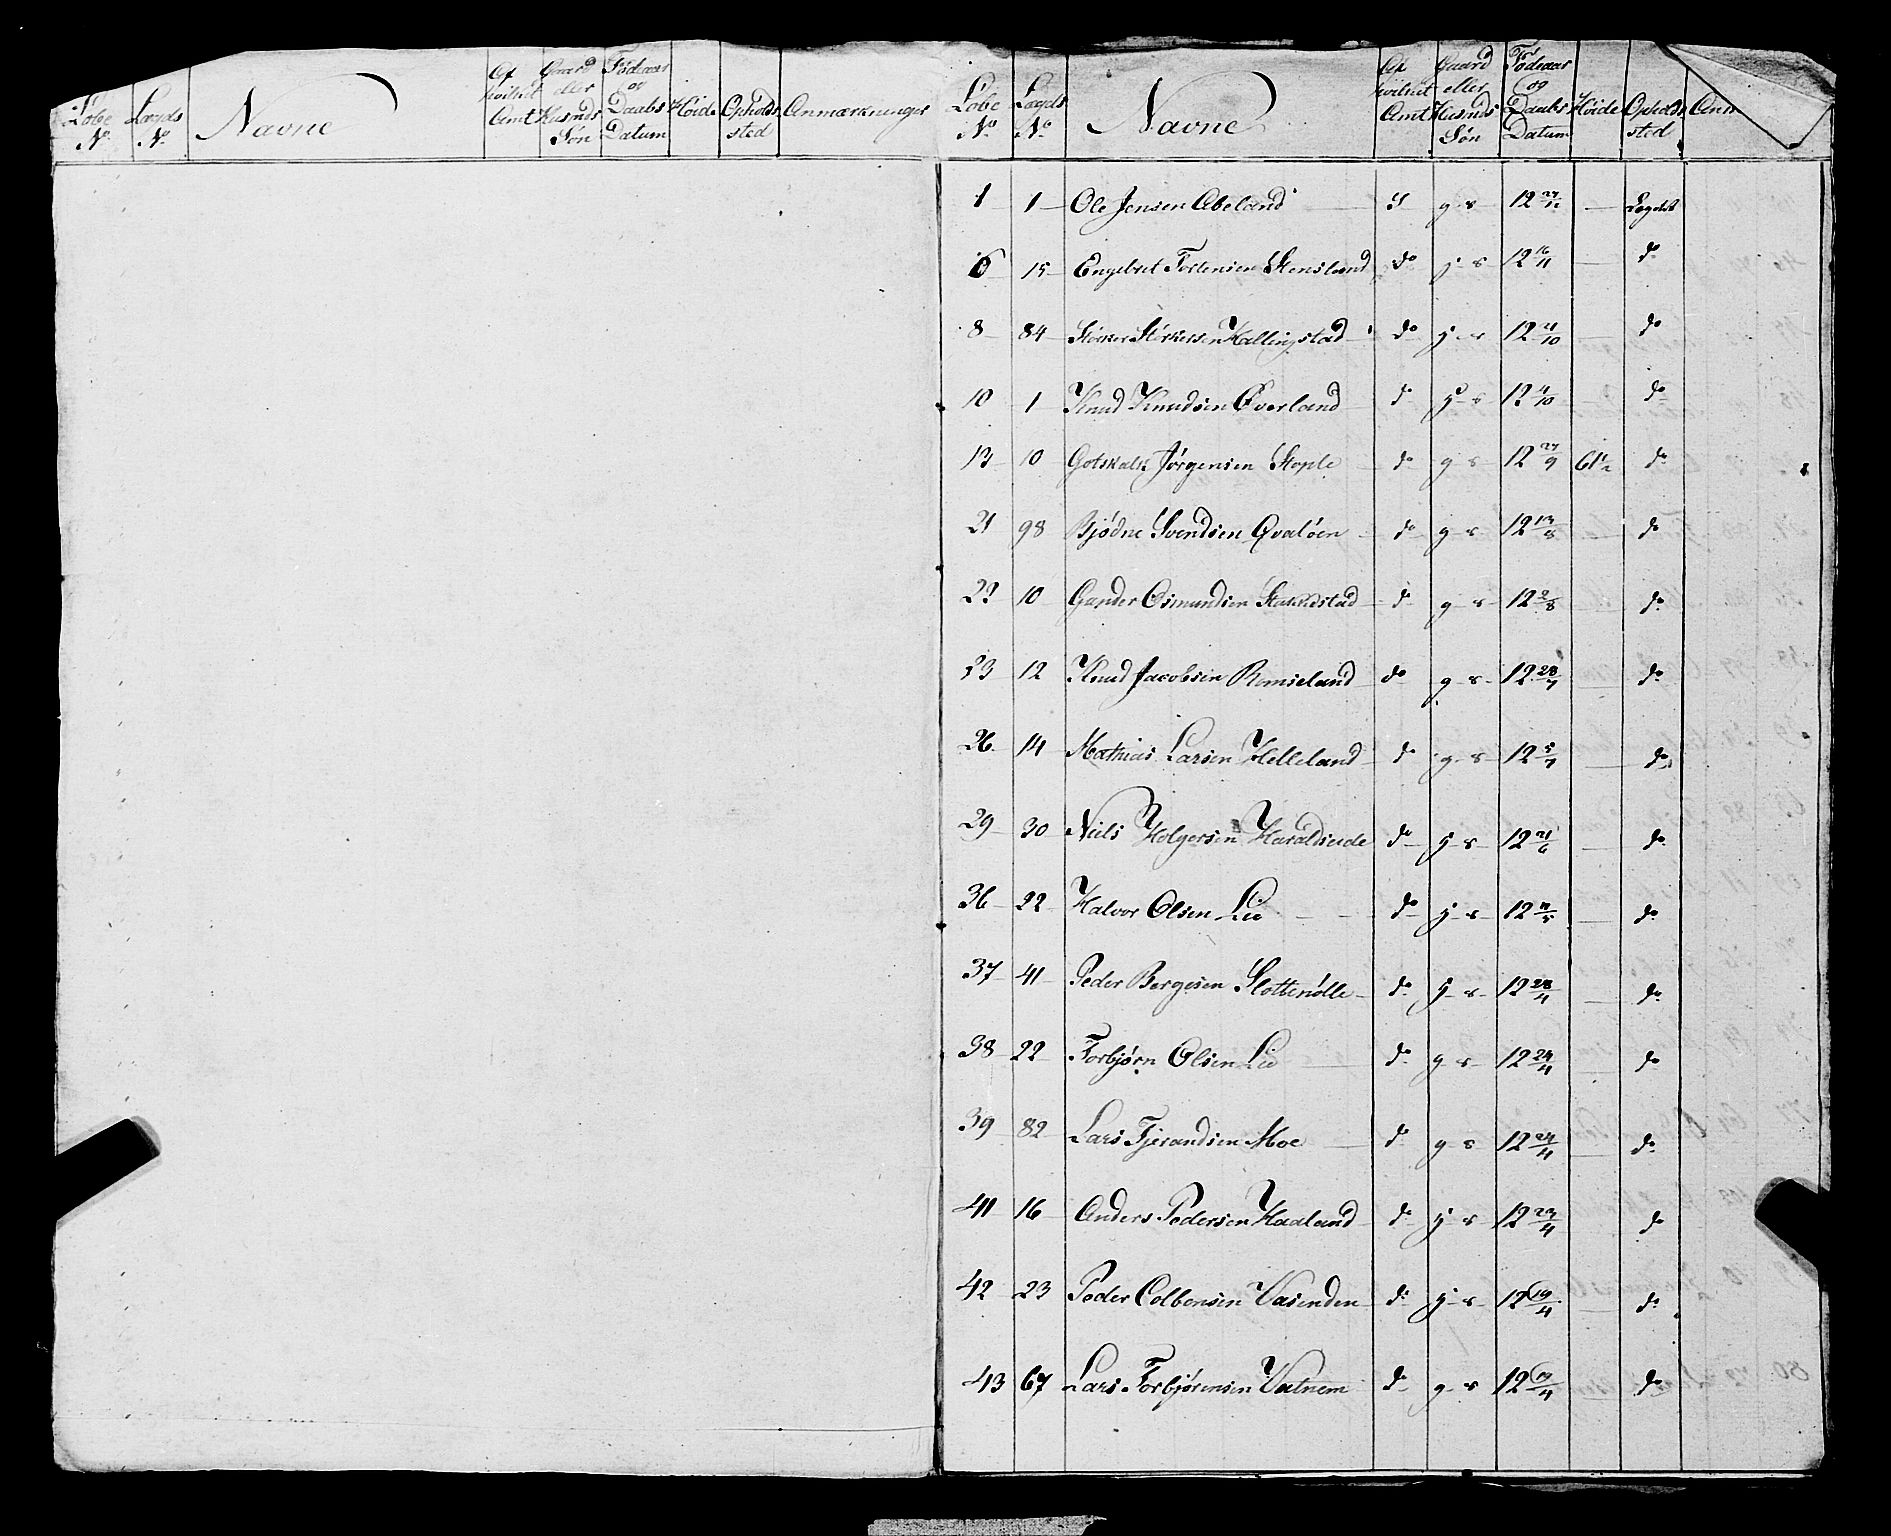 Løbe No Lægds No Navne Af hvilket Amt Gaard eller Husmds Søn Fødeaar og Daabs Datum Høide Opholds sted Anmærkninger
Løbe No Lægds No Navne Af hvilket Amt Gaard eller Husmds Søn Fødeaar og Daabs Datum Høide Opholds sted Anm
1 1 Ole Jensen Abeland S g s 12 27/12 — Lægdet
6 15 Engebret Tostensen Stensland do g s 12 16/11 — do
8 84 Størker Størkersen Hallingstad do g s 12 11/10 — do
10 1 Knud Knudsen Øverland do g s 12 4/10 — do
13 10 Gotskalk Jørgensen Stople do g s 12 27/9 61½ do
21 98 Bjødne Svendsen Qvaløen do g s 12 13/8 — do
22 10 Gunder Osmundsen do g s 12 2/8 do
23 12 Knud Jacobsen Romseland do g s 12 28/7 — do
26 14 Mathias Larsen Helleland do g s 12 5/7 — do
29 30 Niels Holgersen Haraldseide do g s 12 21/6 — do
36 22 Halvor Olsen Lie do g s 12 11/5 — do
37 41 Peder Børgesen Slottenølle do g s 12 28/4 — do
38 22 Torbjørn Olsen Lie do g s 12 24/4 — do
39 82 Lars Tjerandsen Moe do g s 12 24/4 — do
41 16 Anders Pedersen Haaland do g s 12 23/4 do
42 23 Peder Colbensen Vasenden do g s 12 19/4 — do
43 67 Lars Torbjørensen Vatnem do g s 12 19/4 — do